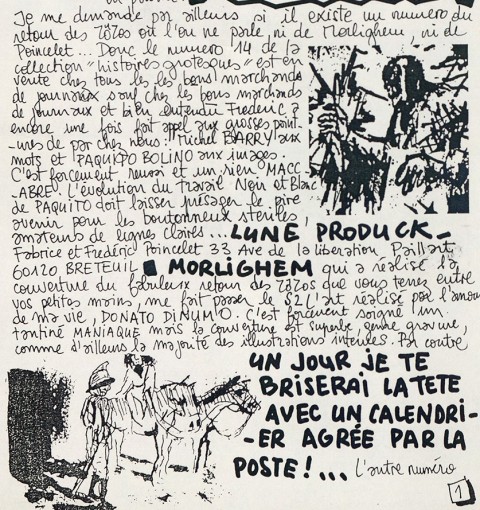 Je me demande par ailleurs si il existe un numero du
retour des Zozos où l'on ne parle, ni de Morlighem, ni de
Poincelet... Donc le numero 14 de la
collection "histoires grotesques" est en
vente chez tous les bons marchands
de journaux sauf chez les bons marchands
de journaux et bien entendu Frederic a
encore une fois fait appel aux grosses point-
-ures de par chez nous: Michel BARRY aux
mots et PAQUITO BOLINO aux images.
C'est forcement reussi et un rien MACC
-ABRE. L'évolution du travail Noir et Blanc
de PAQUITO doit laisser présager le pire
avenir pour les boutonneux steriles,
amateurs de lignes claires... LUNE PRODUCK_
Fabrice et Frédéric Poincelet 33 Ave de la liberation Paillart
60120 BRETEUIL ■ MORLIGHEM qui a réalisé la
couverture du fabuleux retour des Zozos que vous tenez entre
vos petites mains, me fait passer le S2L'art réalisé par l'amour
de ma vie, DONATO DI NUN'O. C'est forcement soigné un
tantiné MANIAQUE mais la couverture est superbe, genre gravure,
comme d'ailleurs la majorité des illustrations interieures. Par contre
UN JOUR JE TE
BRISERAI LA TETE
AVEC UN CALENDRI-
-ER AGRÉE PAR LA
POSTE!... L'autre numéro
1